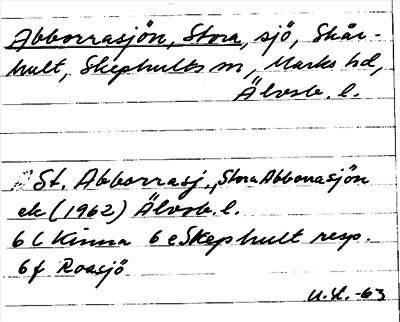 Abborrasjön, Stora, sjö, Skår-
hult, Skephults sn, Marks hd,
Älvsb. l.
St. Abborrasj., Stora Abborrasjön
ek (1962) Älvsb. l.
6 c Kinna 6 e Skephult resp.
6 f Roasjö
U.L. -63